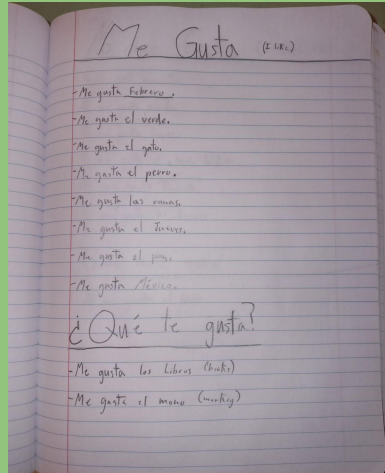 Me Gusta (I like)
-Me gusta Febrero.
-Me gusta el verde.
-Me gusta el gato.
-Me gusta el perro.
-Me gusta las
-Me gusta el Jueves.
-Me gusta el
-Me gusta México.
¿Qué te gusta?
-Me gusta los Libros (books)
-Me gusta el mono (monkey)